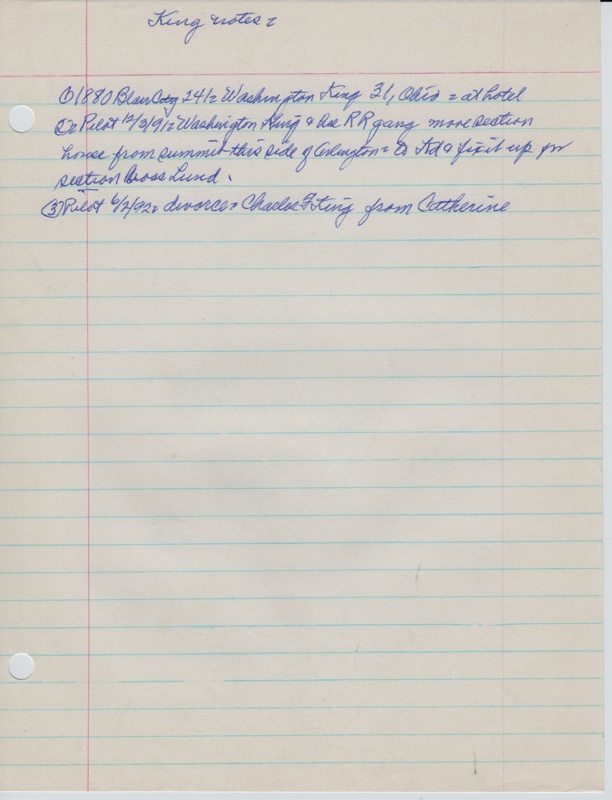 King notes =
① 1880 Blair City 241 = Washington King 31, Ohio = at hotel
② Pilot 12/3/91 = Washington King & his RR gang move section
house from summit this side of Arlington = to Kd & fix it up for
section boss Lund.
③ Pilot 6/2/92 = divorce = Charles F King from Catherine